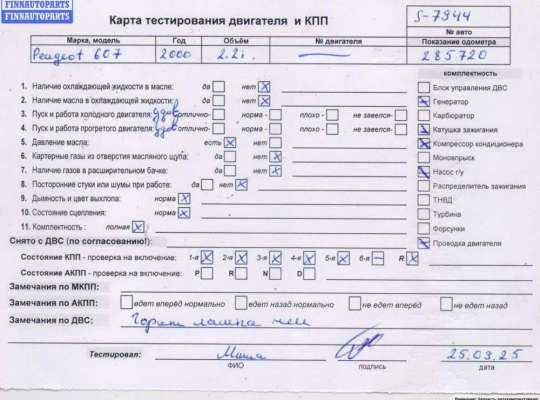 FINNAUTOPARTS
FINNAUTOPARTS
Карта тестирования двигателя и КПП
S-7944
№ авто
Марка, модель Год Объём № двигателя Показание одометра
Peugeot 607 2000 2.2i 285720
комплектность
1. Наличие охлаждающей жидкости в масле: да нет X
2. Наличие масла в охлаждающей жидкости: да нет X
3. Пуск и работа холодного двигателя: удов отлично- норма - плохо - не завелся-
4. Пуск и работа прогретого двигателя: удов отлично- норма - плохо - не завелся-
5. Давление масла: есть X нет
6. Картерные газы из отверстия масляного щупа: да нет X
7. Наличие газов в расширительном бачке: да нет X
8. Посторонние стуки или шумы при работе: да нет X
9. Дымность и цвет выхлопа: норма X
10. Состояние сцепления: норма X
11. Комплектность: полная X
Блок управления ДВС
Генератор
Карбюратор
Катушка зажигания
Компрессор кондиционера
Моновпрыск
Насос г/у
Распределитель зажигания
ТНВД
Турбина
Форсунки
Проводка двигателя
Снято с ДВС (по согласованию!):
Состояние КПП - проверка на включение: 1-я X 2-я X 3-я X 4-я X 5-я X 6-я – R X
Состояние АКПП - проверка на включение: P R N D
Замечания по МКПП:
Замечания по АКПП: едет вперёд нормально едет назад нормально не едет вперёд не едет назад
Замечания по ДВС: Горит лампа чек
Тестировал: Миша 25.03.25
ФИО подпись дата